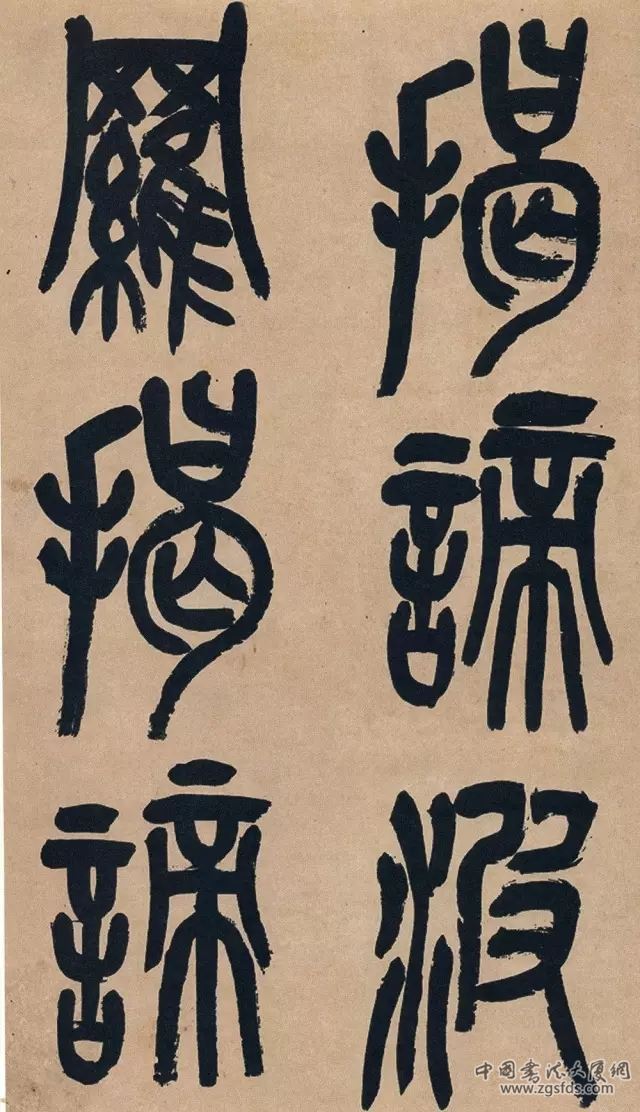 揭諦波
羅揭諦
中国书法大厦网
www.zgsfds.com